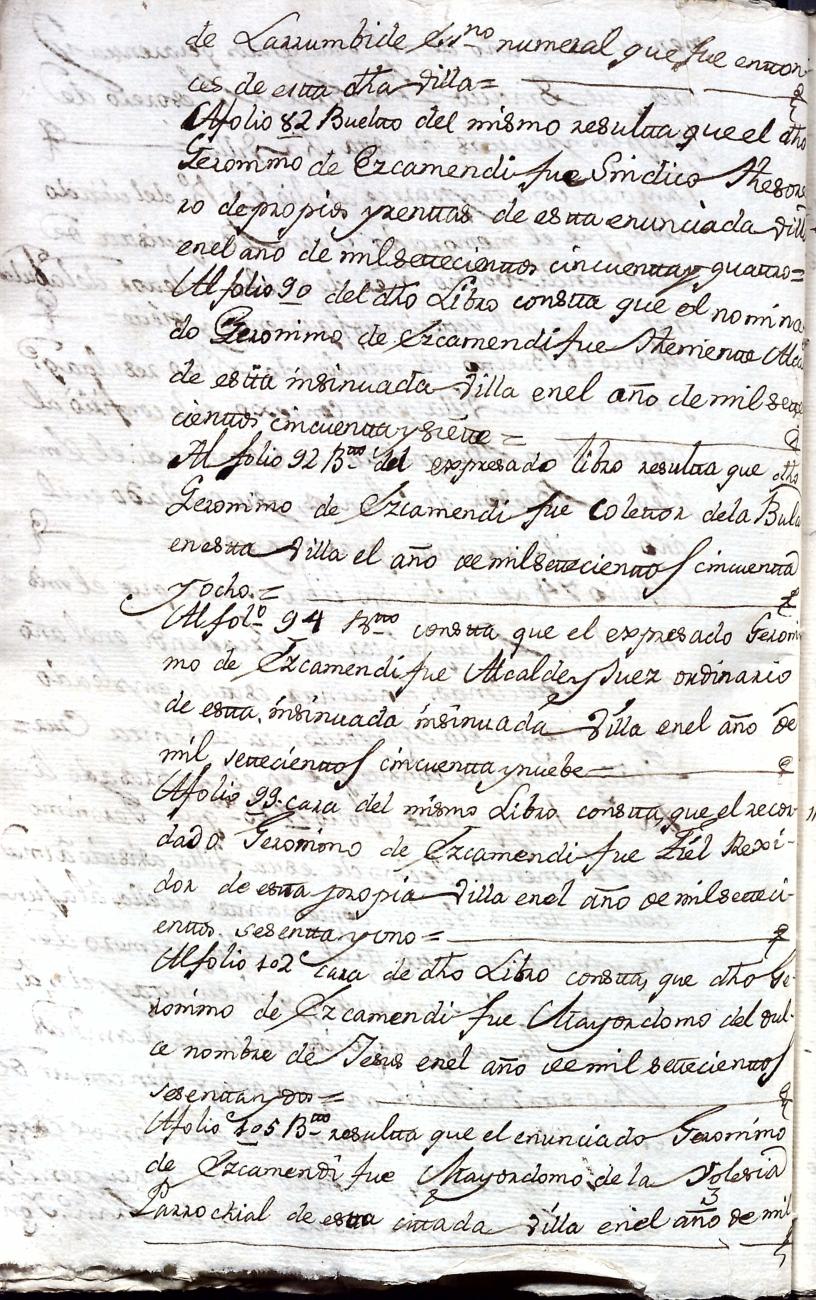 de Larrumbide Essno numeral que fue enton-
ces de estta dha Villa =
Al folio 82 Buelto del mismo resultta que el dho
Geronimo de Ezcamendi fue Sindico Thesore-
ro de propios y renttas de estta enunciada Villa
en el año de mil settecienttos cincuentta y quattro =
Al folio 90 del dho Libro constta que el nomina-
do Geronimo de Ezcamendi fue Thenientte Alcalde
de estta insinuada Villa en el año de mil sette-
cienttos cincuentta y siette =
Al folio 92 Btto del expresado libro resultta que dho
Geronimo de Ezcamendi fue Colettor de la Bula
en estta Villa el año de mil settecienttos cincuentta
y ocho =
Al folo 94 Btto constta que el expresado Geroni-
mo de Ezcamendi fue Alcalde y Juez ordinario
de estta insinuada insinuada Villa en el año de
mil settecienttos cincuentta y nuebe
Al folio 99 cara del mismo Libro constta, que el recor-
dado Geronimo de Ezcamendi fue Fiel Rexi-
dor de estta propia Villa en el año de mil setteci-
enttos sesentta y uno =
Al folio 102 cara de dho Libro constta, que dho Ge-
ronimo de Ezcamendi fue Mayordomo del dul-
ce nombre de Jesus en el año de mil settecienttos
sesentta y dos =
Al folio 105 Btto resultta que el enunciado Geronimo
de Ezcamendi fue Mayordomo de la Yglesia
Parrochial de estta cittada Villa en el año de mil
3